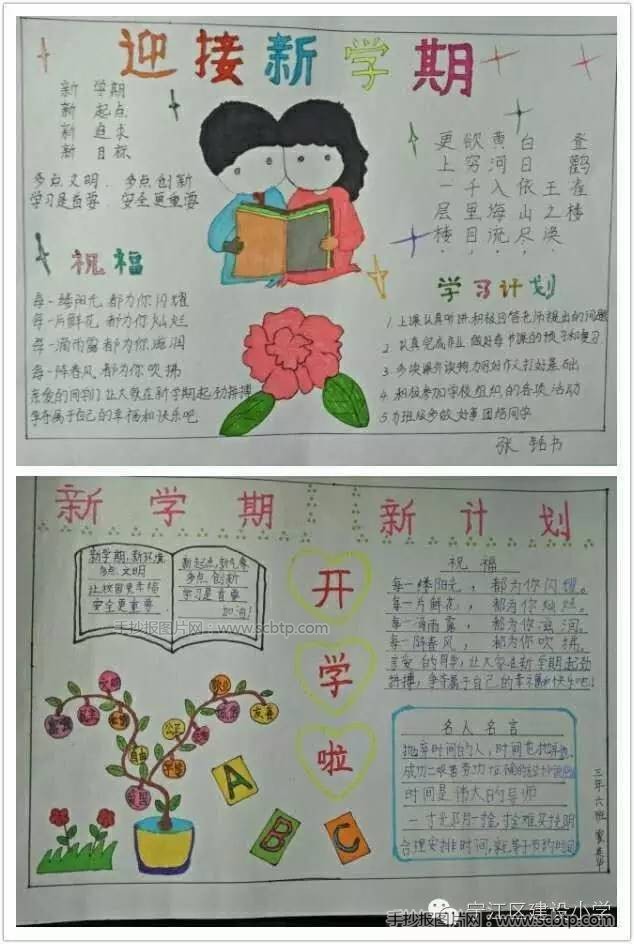 迎接新学期
新 学期
新 起点
新 追求
新 目标
多点文明、多点创新
学习是首要,安全更重要
更欲黄白 登
上穷河日 鹳
一千入依王雀
层里海山之楼
楼目流尽涣
祝福
每一缕阳光,都为你闪耀
每一片鲜花,都为你灿烂
每一滴雨露 都为你滋润
每一阵春风,都为你吹拂
亲爱的同学们 让大家在新学期起劲拼搏
争夺属于自己的幸福和快乐吧
学习计划
1.上课认真听讲,积极回答老师提出的问题
2.认真完成作业 做好每节课的预习和复习.
3.多读课外读物 为写好作文打好基础
4.积极参加学校组织的各项活动
5.为班级多做好事 团结同学
张 书
新学期 新计划
新学期,新环境
多点文明
让校园更幸福
安全更重要
新起点,新气象
多点创新
学习是首要
加油!
手抄报图片网:www.scbtp.com
开
学
啦
祝福
每一缕阳光, 都为你闪耀。
每一片鲜花, 都为你灿烂。
每一滴雨露, 都为你滋润。
每一阵春风, 都为你吹拂。
亲爱的同学,让大家在新学期起劲
拼搏,争夺属于自己的幸福和快乐吧!
A
B
C
名人名言
抛弃时间的人,时间也抛弃他。
成功=艰苦劳动+正确的
时间是伟大的导师
一寸光阴一寸金,寸金难买
合理安排时间,就等于节约时间
三年六班
宁江区建设小学
手抄报图片网:www.scbtp.com